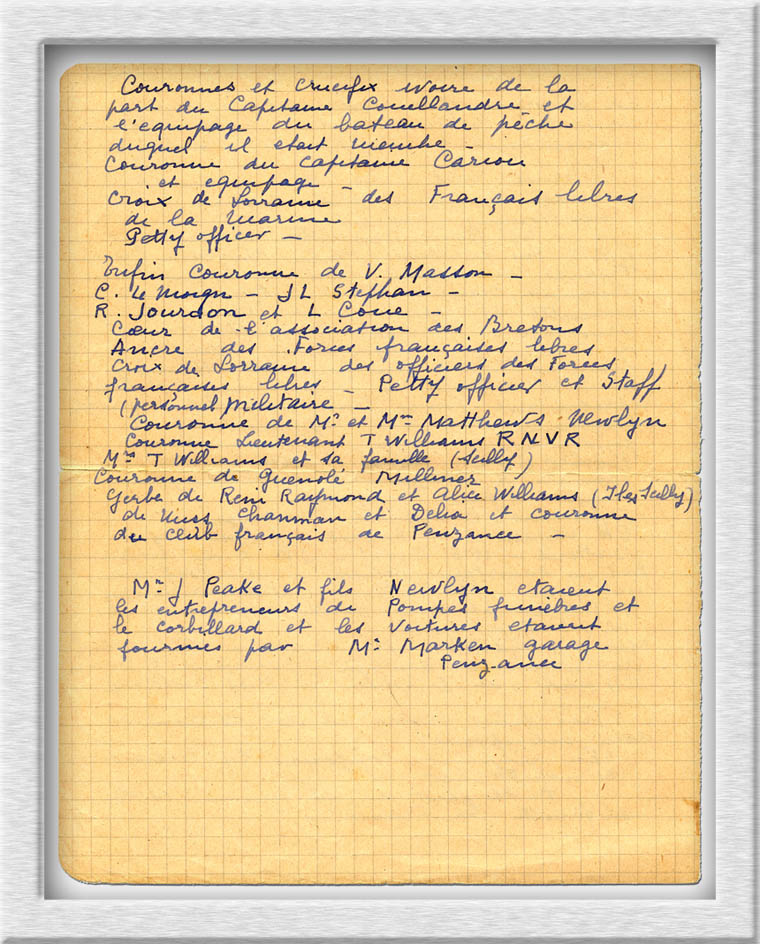 Couronnes et Crucifix ivoire de la
part du Capitaine Couellandre et
l'equipage du bateau de pêche
duquel il etait membre –
Couronne du Capitaine Cariou
et equipage –
Croix de Lorraine des Français libres
de la Marine
Petty officer –
Enfin Couronne de V. Masson –
C. Le Moign – JL Stephan –
R. Jourdon et L Coue –
Cœur de l'association des Bretons
Ancre des Forces françaises libres
Croix de Lorraine des officiers des Forces
françaises libres – Petty officier et Staff
(personnel militaire –
Couronne de Mr et Mme Matthews Newlyn
Couronne Lieutenant T Williams RNVR
Mme T Williams et sa famille (Scilly)
Couronne de Guenolé
Gerbe de Reni Raymond et Alice Williams (Iles Scilly)
de Miss Chanman et Delia et couronne
du club français de Penzance –
Mr J Peake et fils Newlyn etaient
les entrepreneurs de Pompes funèbres et
le corbillard et les voitures etaient
fournies par Mr Marken garage
Penzance